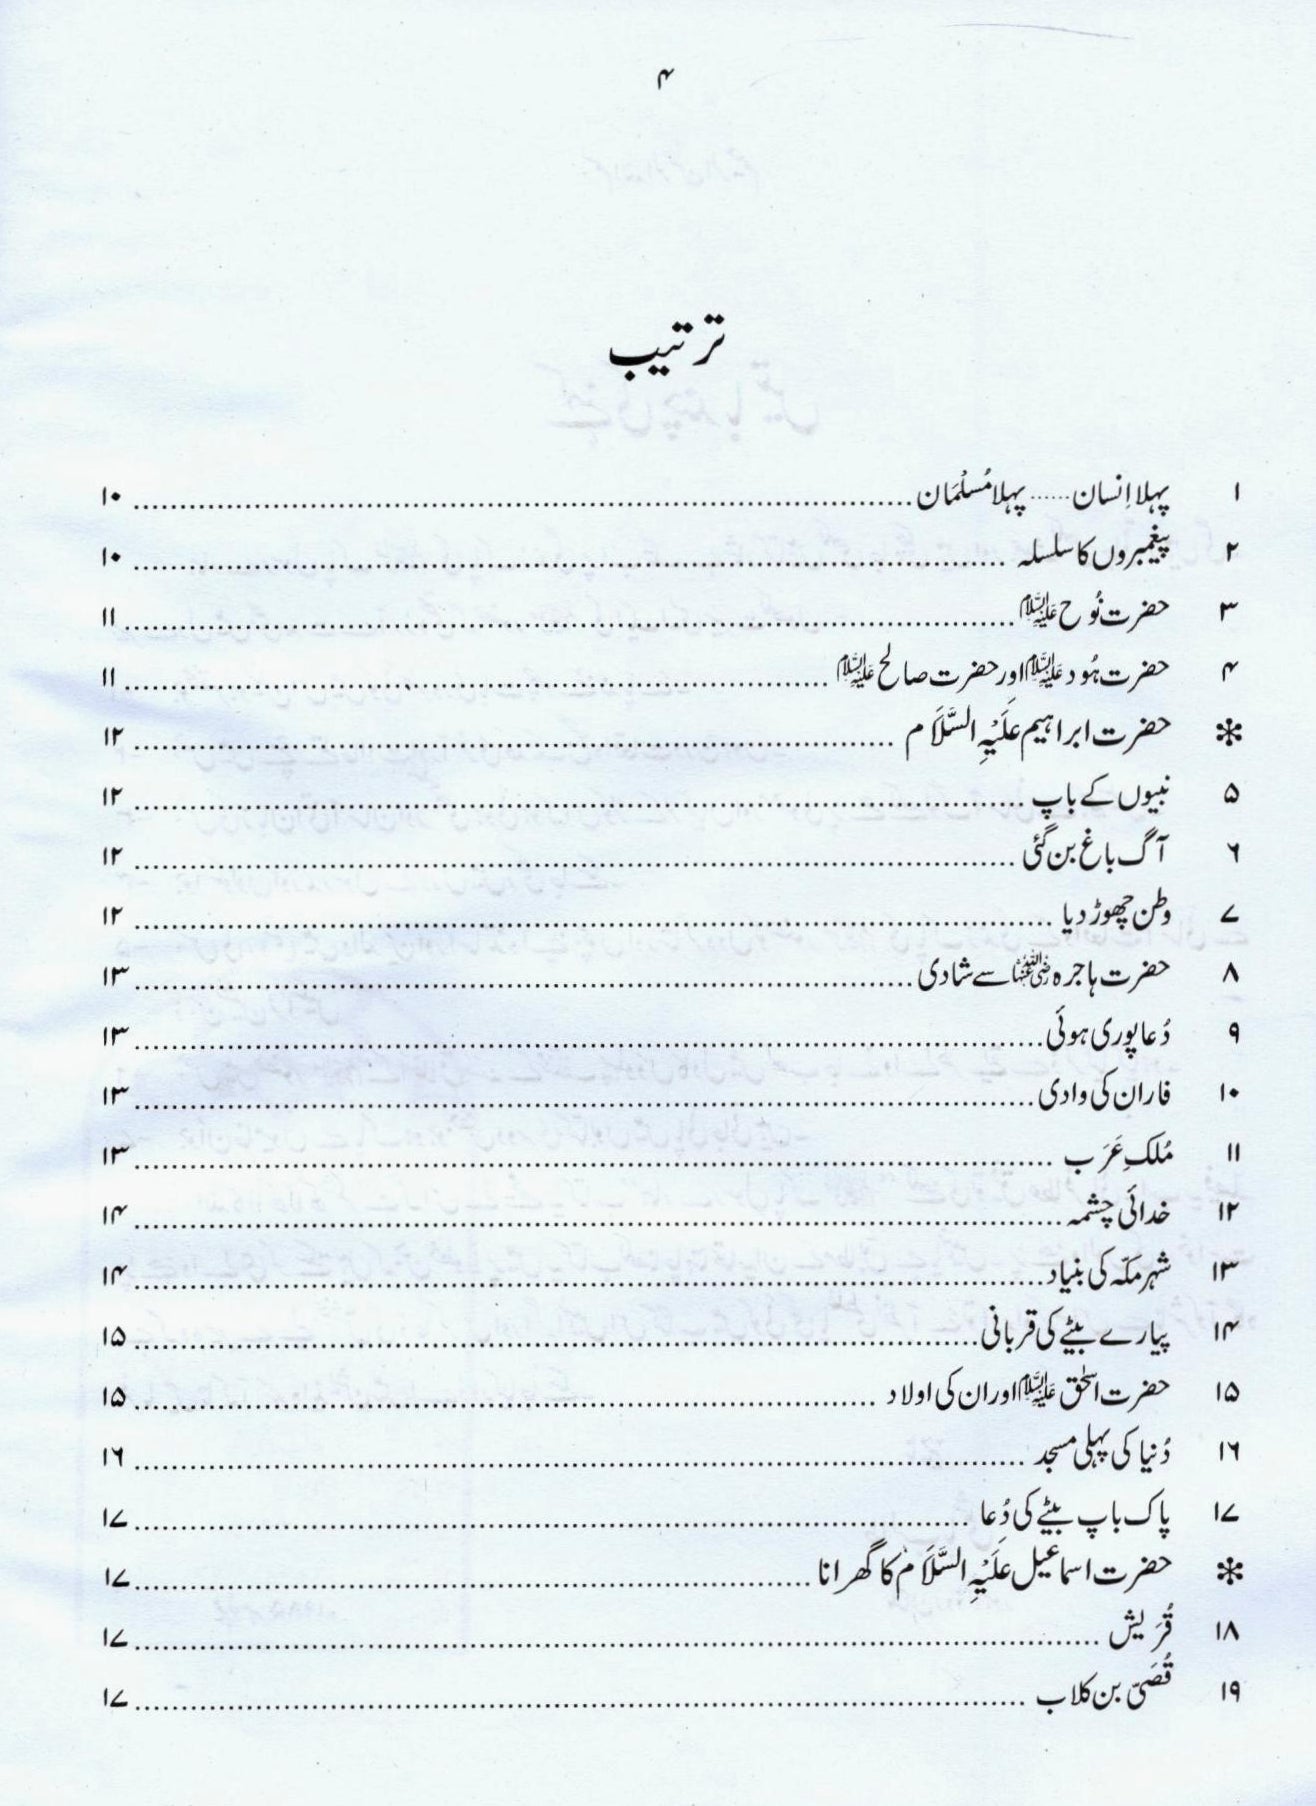 ۴
ترتیب
۱ پہلا اِنسان ...... پہلا مُسلْمَان ۱۰
۲ پیغمبروں کا سلسلہ ۱۰
۳ حضرت نُوح علیہ السلام ۱۱
۴ حضرت ہُود علیہ السلام اور حضرت صالح علیہ السلام ۱۱
✻ حضرت ابراہیم عَلَیْہِ السَّلَام ۱۲
۵ نبیوں کے باپ ۱۲
۶ آگ باغ بن گئی ۱۲
۷ وطن چھوڑ دیا ۱۲
۸ حضرت ہاجرہ رضی اللہ عنہا سے شادی ۱۳
۹ دُعا پوری ہوئی ۱۳
۱۰ فاران کی وادی ۱۳
۱۱ مُلکِ عَرَب ۱۳
۱۲ خدائی چشمہ ۱۴
۱۳ شہر مکّہ کی بنیاد ۱۴
۱۴ پیارے بیٹے کی قربانی ۱۵
۱۵ حضرت اسحٰق علیہ السلام اور ان کی اولاد ۱۵
۱۶ دُنیا کی پہلی مسجد ۱۶
۱۷ پاک باپ بیٹے کی دُعا ۱۷
✻ حضرت اسماعیل عَلَیْہِ السَّلَام کا گھرانا ۱۷
۱۸ قُرَیش ۱۷
۱۹ قُصَیّ بن کلاب ۱۷